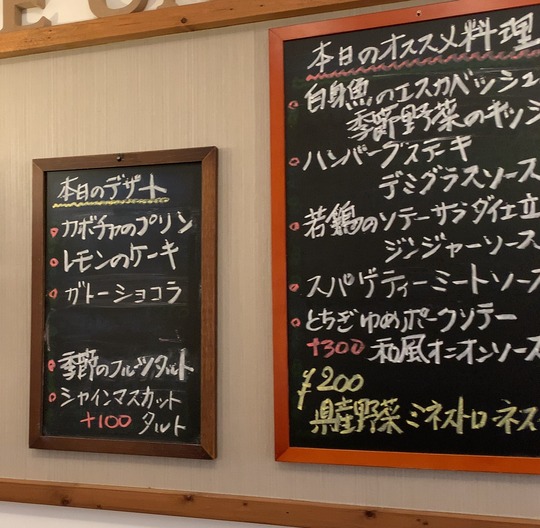 本日のデザート
カボチャのプリン
レモンのケーキ
ガトーショコラ
季節のフルーツタルト
シャインマスカット
+100 タルト
本日のオススメ料理
白身魚のエスカベッシュ
季節野菜のキッシ
ハンバーグステーキ
デミグラスソース
若鶏のソテーサラダ仕立
ジンジャーソース
スパゲティーミートソース
とちぎゆめポークソテー
+300 和風オニオンソース
¥200
県産野菜ミネストロネス